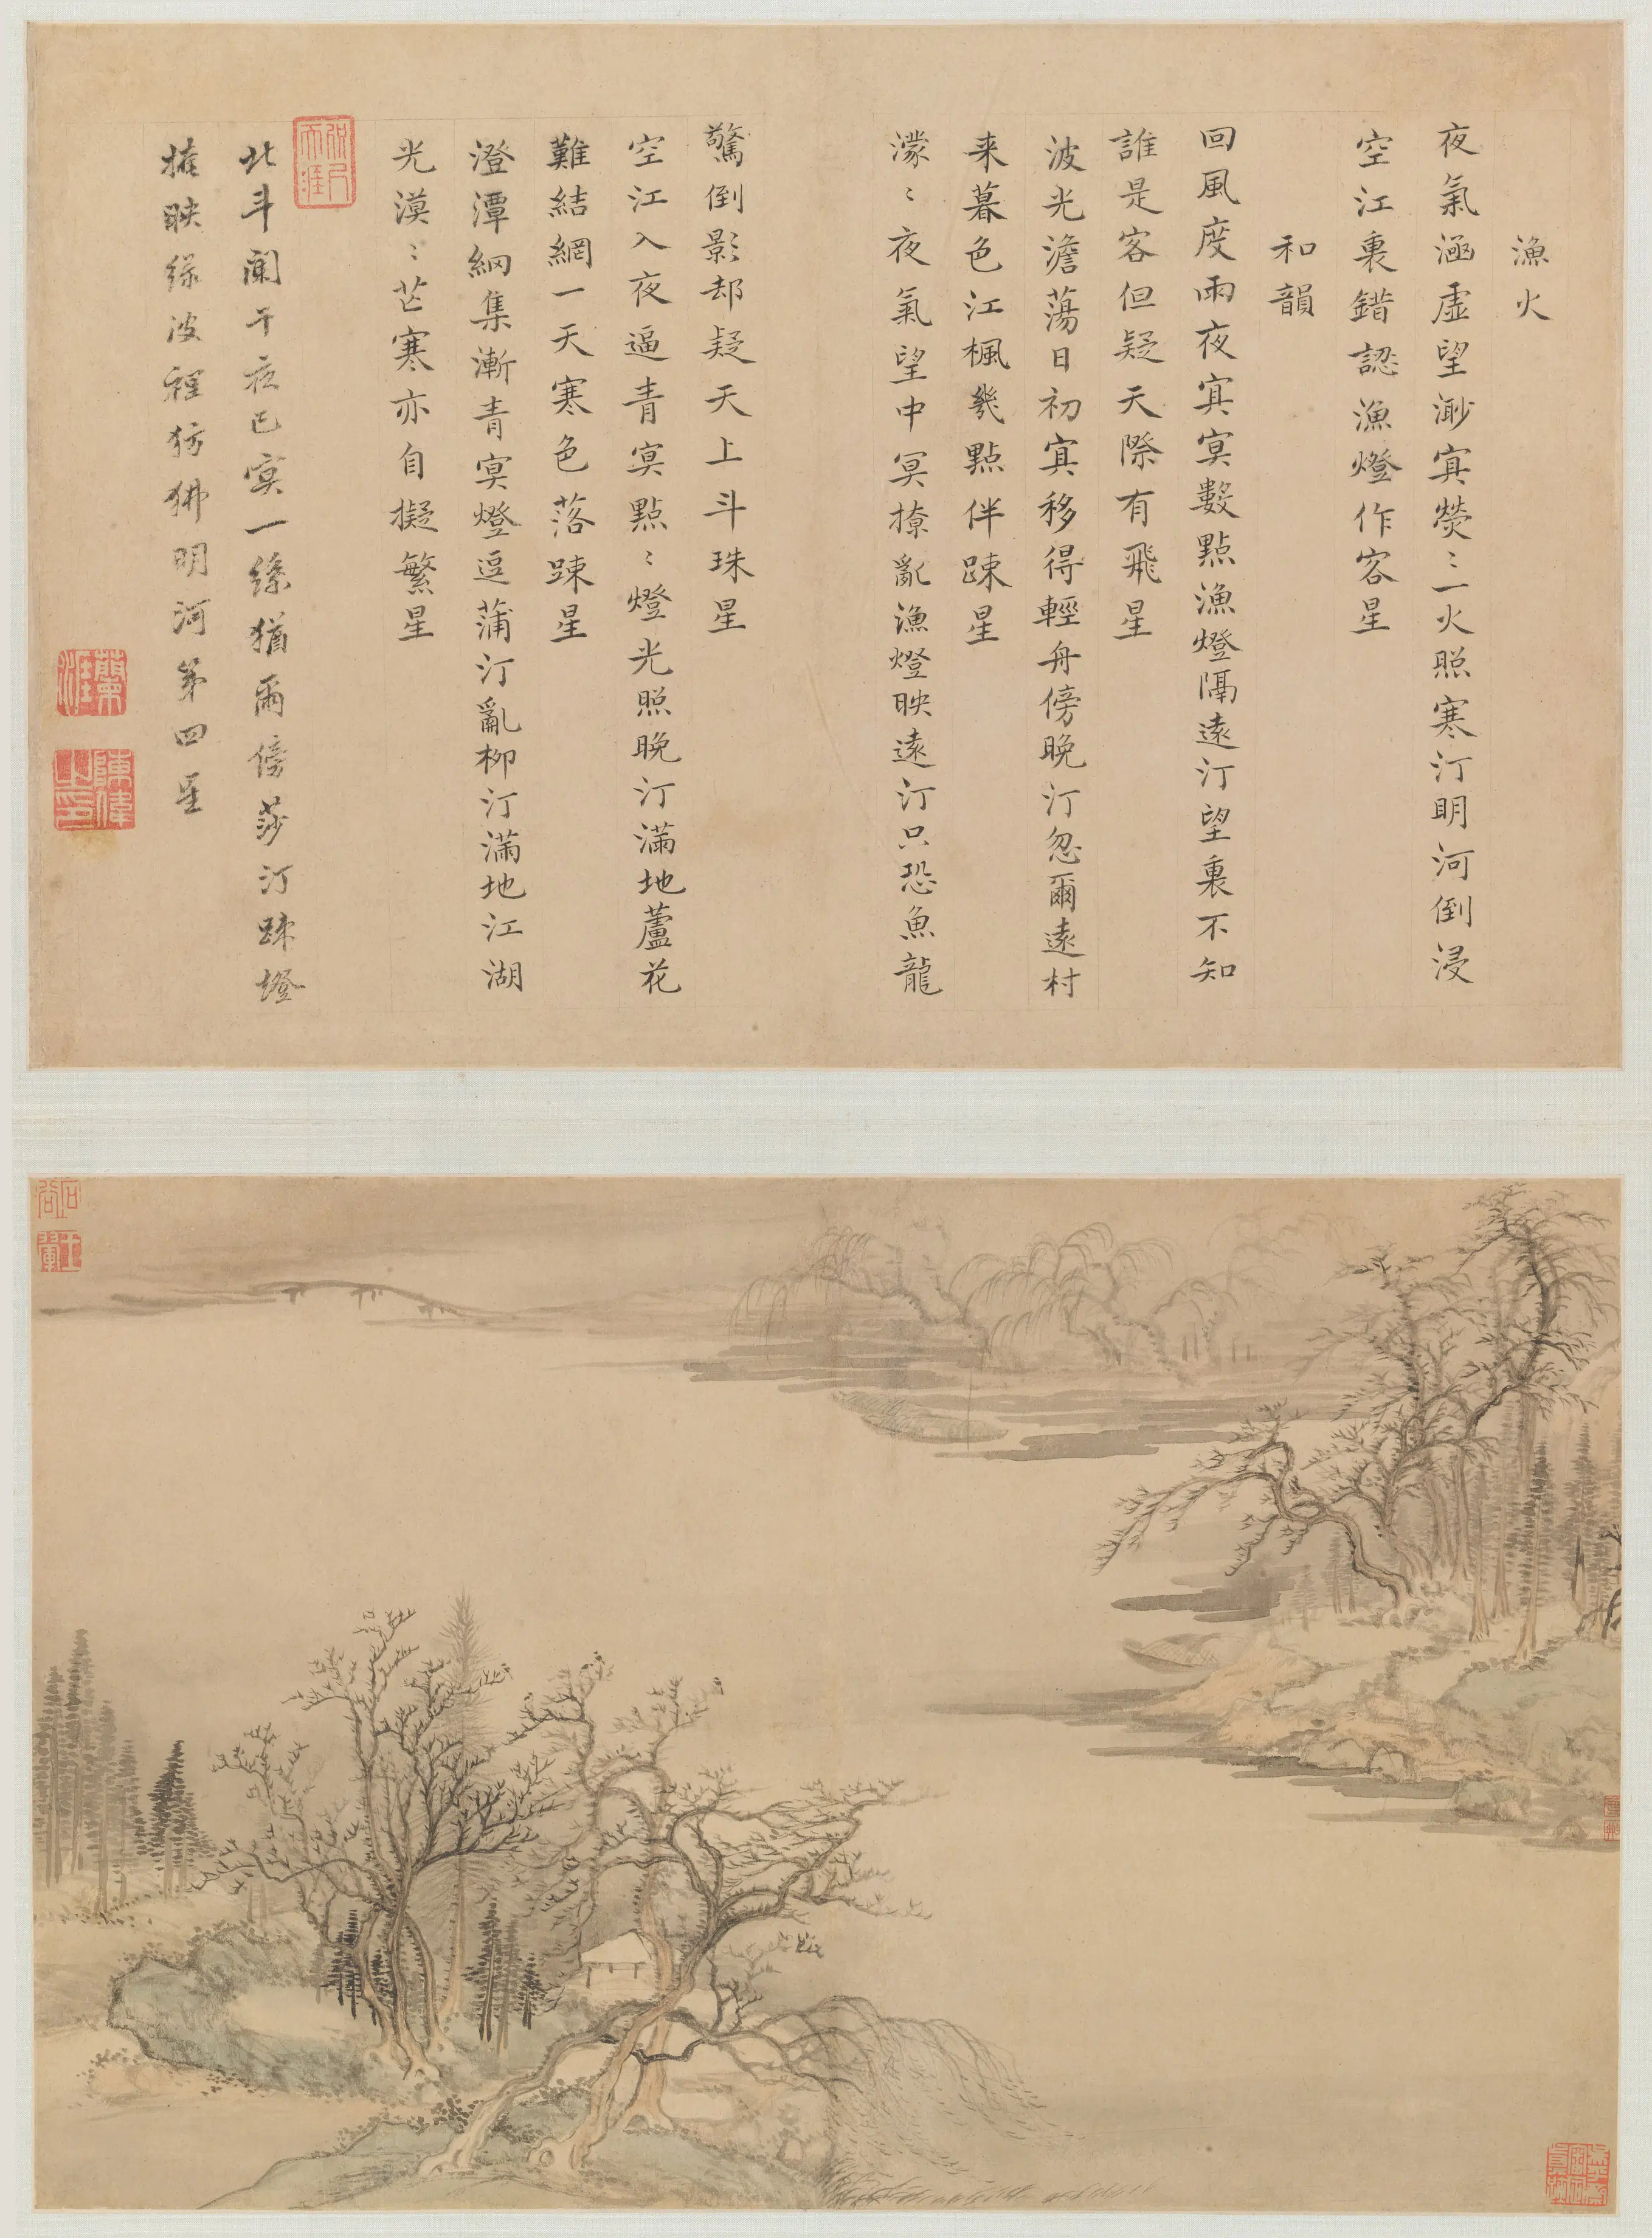 漁火
夜氣涵虛望渺冥熒〻一火照寒汀明河倒浸
空江裏錯認漁燈作客星
和韻
回風度雨夜冥冥數點漁燈隔遠汀望裏不知
誰是客但疑天際有飛星
波光澹蕩日初冥移得輕舟傍晚汀忽爾遠村
来暮色江楓幾點伴踈星
濛〻夜氣望中冥撩亂漁燈映遠汀只恐魚龍
驚倒影却疑天上斗珠星
空江入夜逼青冥點〻燈光照晚汀滿地蘆花
難結網一天寒色落踈星
澄潭網集漸青冥燈逗蒲汀亂柳汀滿地江湖
光漠〻芒寒亦自擬繁星
北斗闌干夜已冥一絲猶爾傍莎汀踈燈
掩映綠波裡彷彿明河第四星
蘭涯
陳偉之印
石谷
王翬